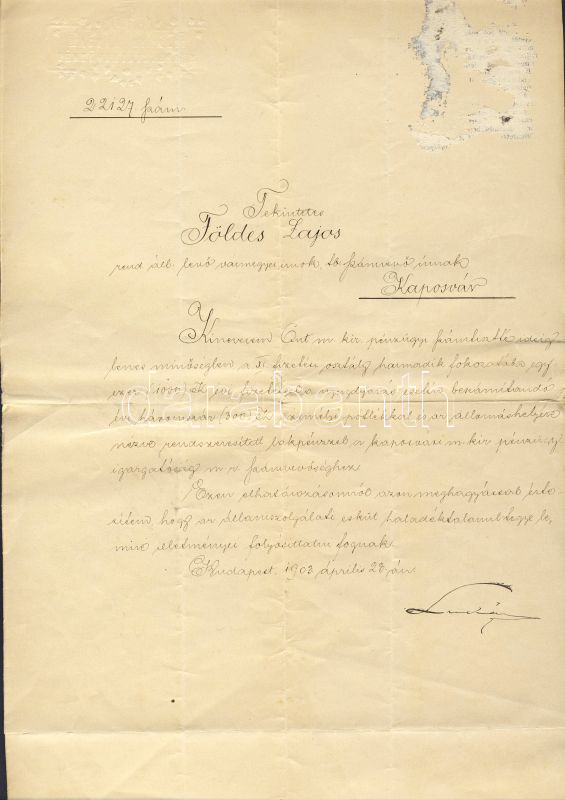 22127. szám
Tekintetes
Földes Lajos
rend. áll. levő vármegyei számvevő úrnak
Kaposvár
Kinevezem Önt m. kir. pénzügyi számtisztté ideig-
lenes minőségben a XI fizetési osztály harmadik fokozatába egy
ezer (1000) évi fizetéssel a nyugdíjazás esetén beszámítandó
évi háromszáz (300) személyi pótlékkal és az állomáshelyére
nézve rendszeresített lakpénzzel a kaposvári m. kir. pénzügy-
igazgatóság m. r. számvevőségéhez.
Ezen elhatározásomról azon meghagyással érte-
sítem, hogy az államszolgálati esküt haladéktalanul tegye le,
mire illetményei folyósíttatni fognak.
Budapest, 1903. április 28-án.
Lukács
darabanth